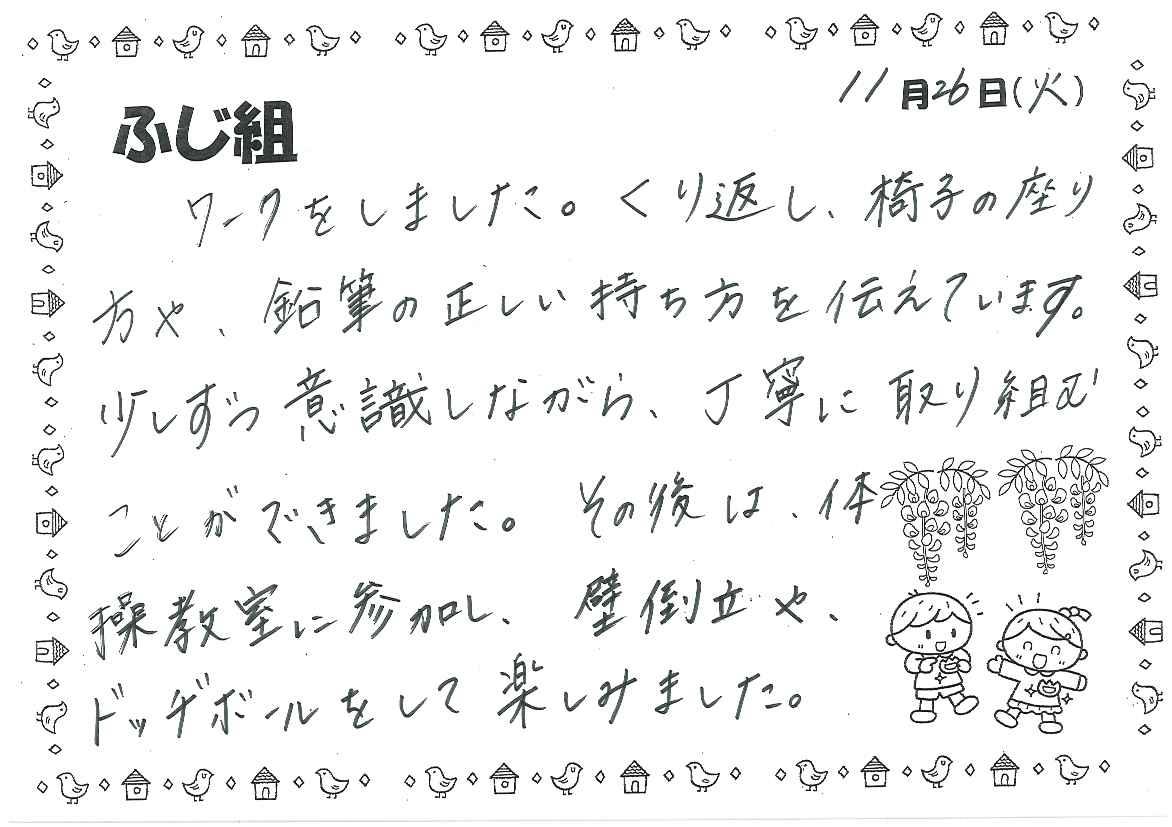 11月26日(火)
ふじ組
ワークをしました。くり返し、椅子の座り
方や、鉛筆の正しい持ち方を伝えています。
少しずつ意識しながら、丁寧に取り組む
ことができました。その後は、体
操教室に参加し、壁倒立や、
ドッヂボールをして楽しみました。